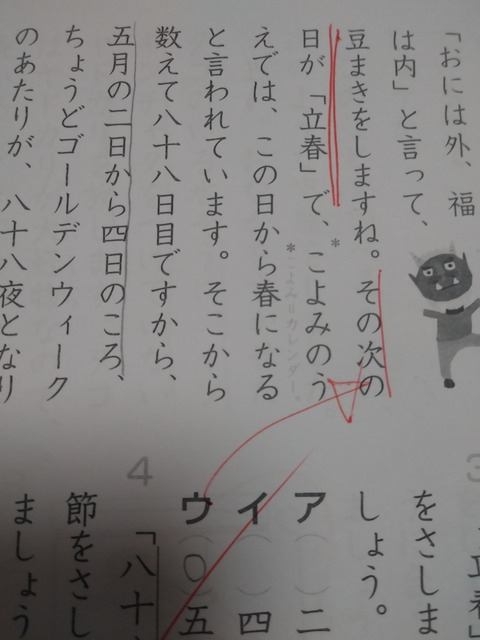 「おには外、福
は内」と言って、
豆まきをしますね。その次の
日が「立春」で、こよみのう
*こよみ=カレンダー。
えでは、この日から春になる
と言われています。そこから
数えて八十八日目ですから、
五月の二日から四日のころ、
ちょうどゴールデンウィーク
のあたりが、八十八夜となり
3
立春」
をさしま
しょう。
ア( )二
イ( )四
ウ(○)五
4
「八十
節をさし
ましょう